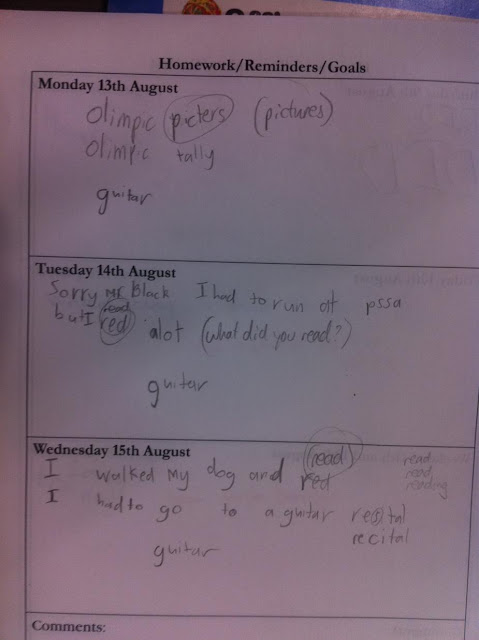 Homework/Reminders/Goals
Monday 13th August
Olimpic picters (pictures)
Olimpic tally
guitar
Tuesday 14th August
Sorry Mr Black I had to run at pssa
read
but I red alot (what did you read?)
guitar
Wednesday 15th August
read
I walked my dog and red
read
read
reading
I had to go to a guitar resital
recital
guitar
Comments: